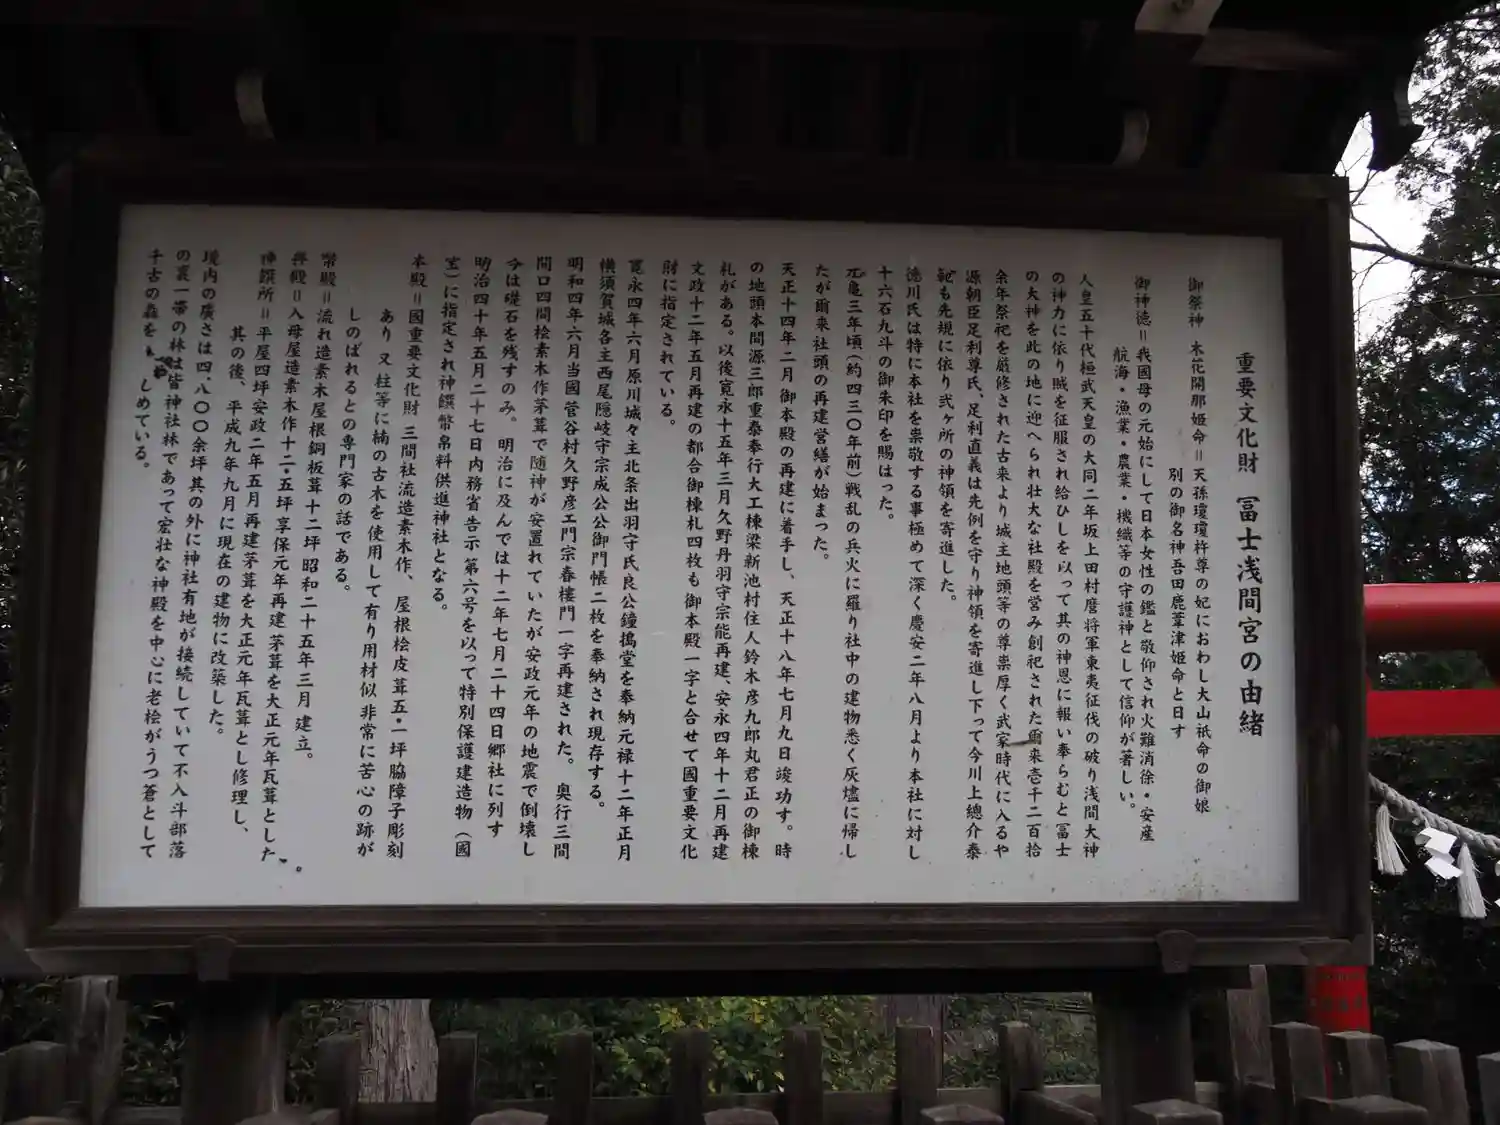 重要文化財 冨士浅間宮の由緒
御祭神 木花開那姫命＝天孫瓊瓊杵尊の妃におわし大山祇命の御娘
別の御名神吾田鹿葦津姫命と日す
御神徳＝我國母の元始にして日本女性の鑑と敬仰され火難消徐・安産
航海・漁業・農業・機織等の守護神として信仰が著しい。
人皇五十代桓武天皇の大同二年坂上田村麿将軍東夷征伐の破り浅間大神
の神力に依り賊を征服され給ひしを以って其の神恩に報い奉らむと冨士
の大神を此の地に迎へられ壮大な社殿を営み創祀された爾来壱千二百拾
余年祭祀を厳修された古来より城主地頭等の尊崇厚く武家時代に入るや
源朝臣足利尊氏、足利直義は先例を守り神領を寄進し下って今川上總介泰
範も先規に依り弐ヶ所の神領を寄進した。
徳川氏は特に本社を崇敬する事極めて深く慶安二年八月より本社に対し
十六石九斗の御朱印を賜はった。
元亀三年頃（約四三〇年前）戦乱の兵火に羅り社中の建物悉く灰燼に帰し
たが爾来社頭の再建営繕が始まった。
天正十四年二月御本殿の再建に着手し、天正十八年七月九日竣功す。時
の地頭本間源三郎重泰奉行大工棟梁新池村住人鈴木彦九郎丸君正の御棟
札がある。以後寛永十五年三月久野丹羽守宗能再建、安永四年十二月再建
文政十二年五月再建の都合御棟札四枚も御本殿一字と合せて國重要文化
財に指定されている。
寛永四年六月原川城々主北条出羽守氏良公鐘搗堂を奉納元禄十二年正月
横須賀城各主西尾隠岐守宗成公公御門帳二枚を奉納され現存する。
明和四年六月当國菅谷村久野彦エ門宗春樓門一字再建された。奥行三間
間口四間桧素木作茅葺で随神が安置れていたが安政元年の地震で倒壊し
今は礎石を残すのみ。明治に及んでは十二年七月二十四日郷社に列す
明治四十年五月二十七日内務省告示第六号を以って特別保護建造物（國
宝）に指定され神饌幣帛料供進神社となる。
本殿＝國重要文化財 三間社流造素木作、屋根桧皮葺五・一坪脇障子彫刻
あり又柱等に楠の古木を使用して有り用材似非常に苦心の跡が
しのばれるとの専門家の話である。
幣殿＝流れ造素木屋根銅板葺十二坪 昭和二十五年三月建立。
拝殿＝入母屋造素木作十二・五坪享保元年再建茅葺を大正元年瓦葺とした。
神饌所＝平屋四坪安政二年五月再建茅葺を大正元年瓦葺とし修理し、
其の後、平成九年九月に現在の建物に改築した。
境内の廣さは四、八〇〇余坪其の外に神社有地が接続していて不入斗部落
の裏一帯の林は皆神社林であって宏壮な神殿を中心に老桧がうつ蒼として
千古の森を しめている。